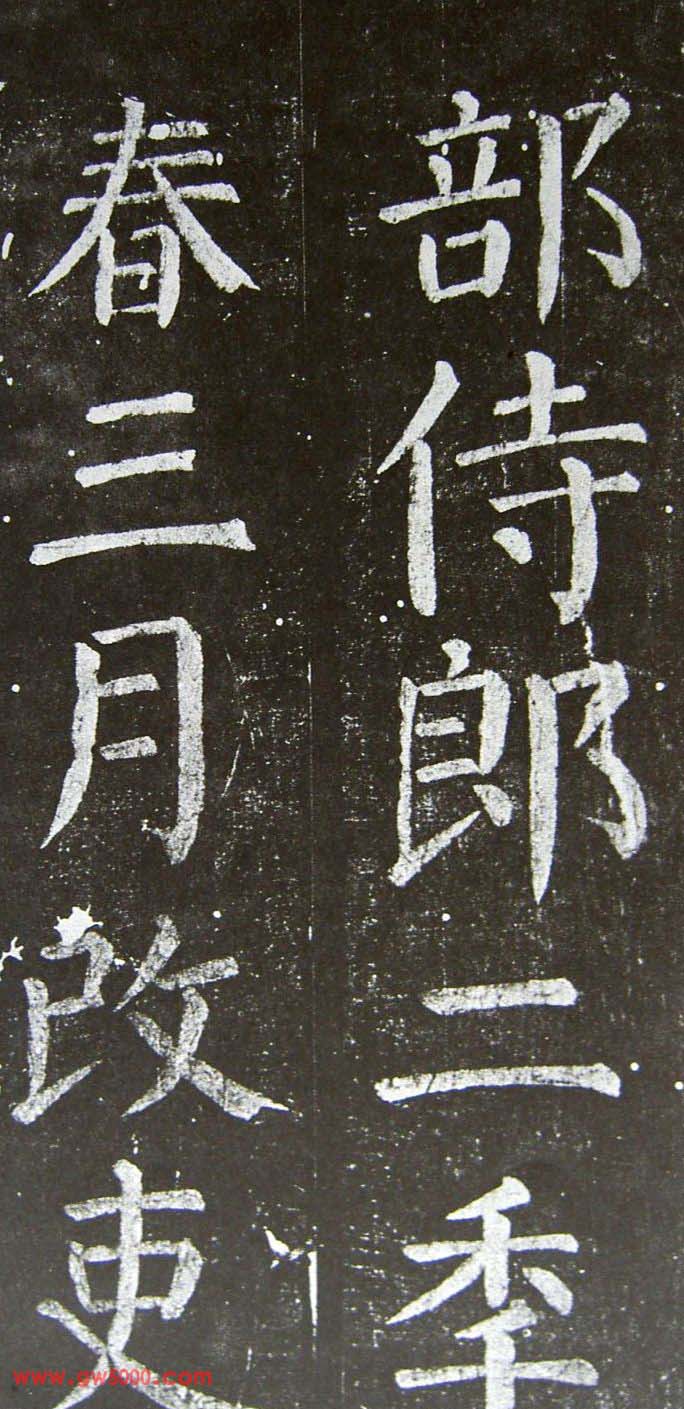 部侍郎二秊
春三月改吏
www.gw5000.com